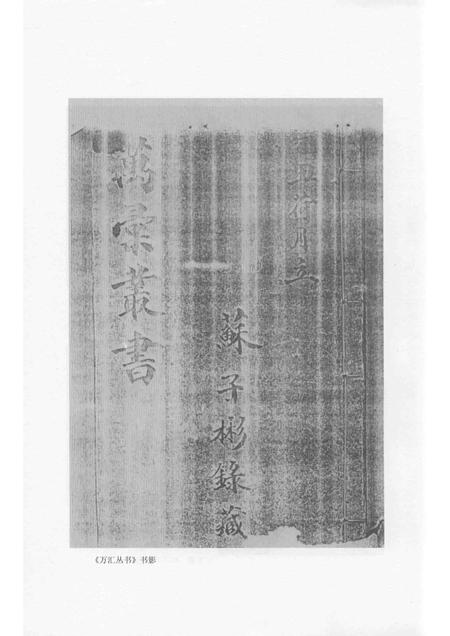 丑荷月立
蘇子彬錄藏
萬彙叢書
《万汇丛书》书影